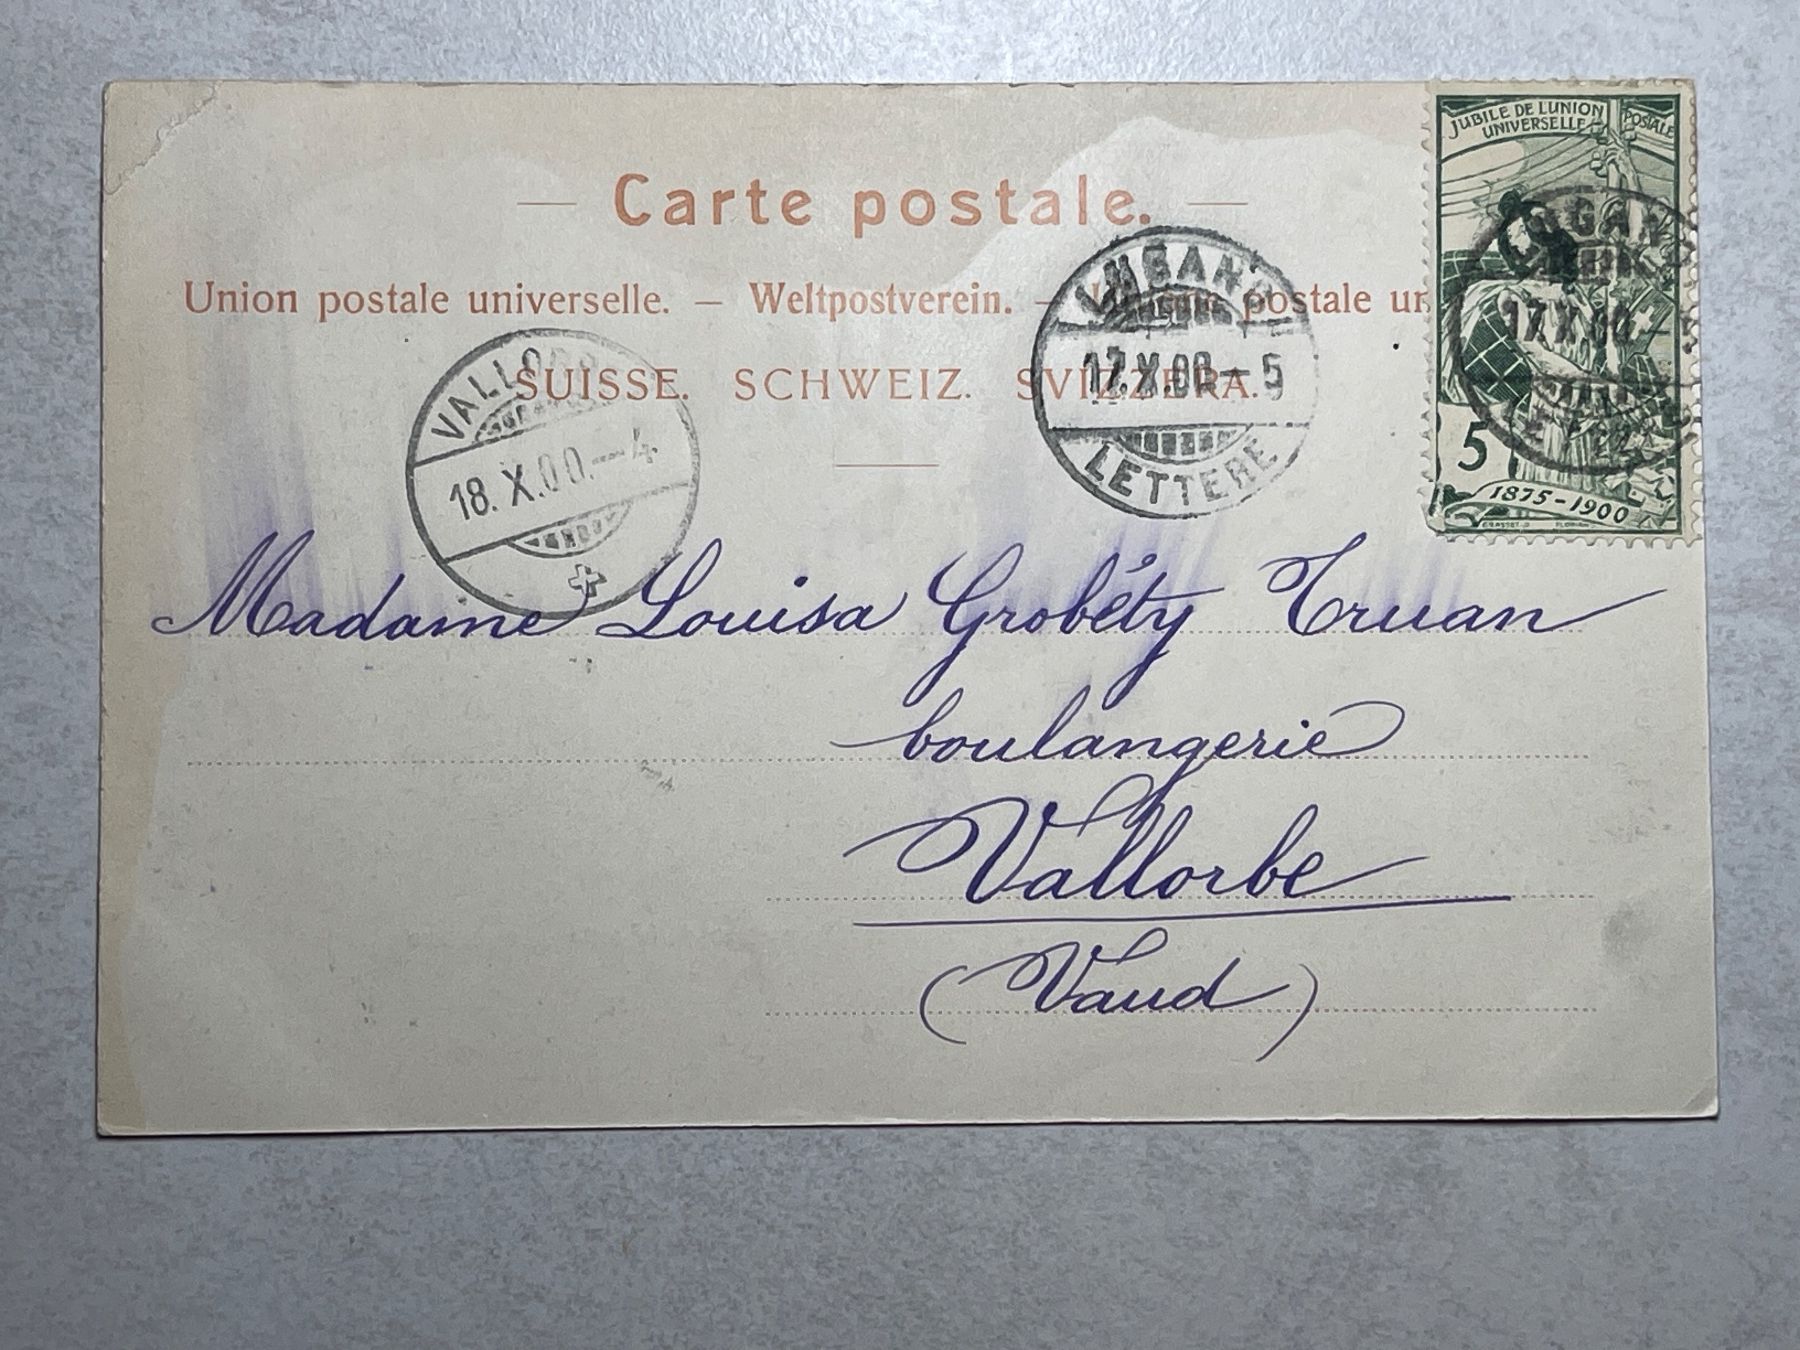 JUBILE DE L'UNION POSTALE
UNIVERSELLE
Carte postale.
Union postale universelle. — Weltpostverein. — postale un
SUISSE. SCHWEIZ. SVIZZERA.
LUGANO
17.X.00.-5
LETTERE
LUGANO
17.X.00.-5
VALLORBE
18.X.00.-4
5
1875-1900
GRASSET
Madame Louisa Grobéty Truan
boulangerie
Vallorbe
(Vaud)